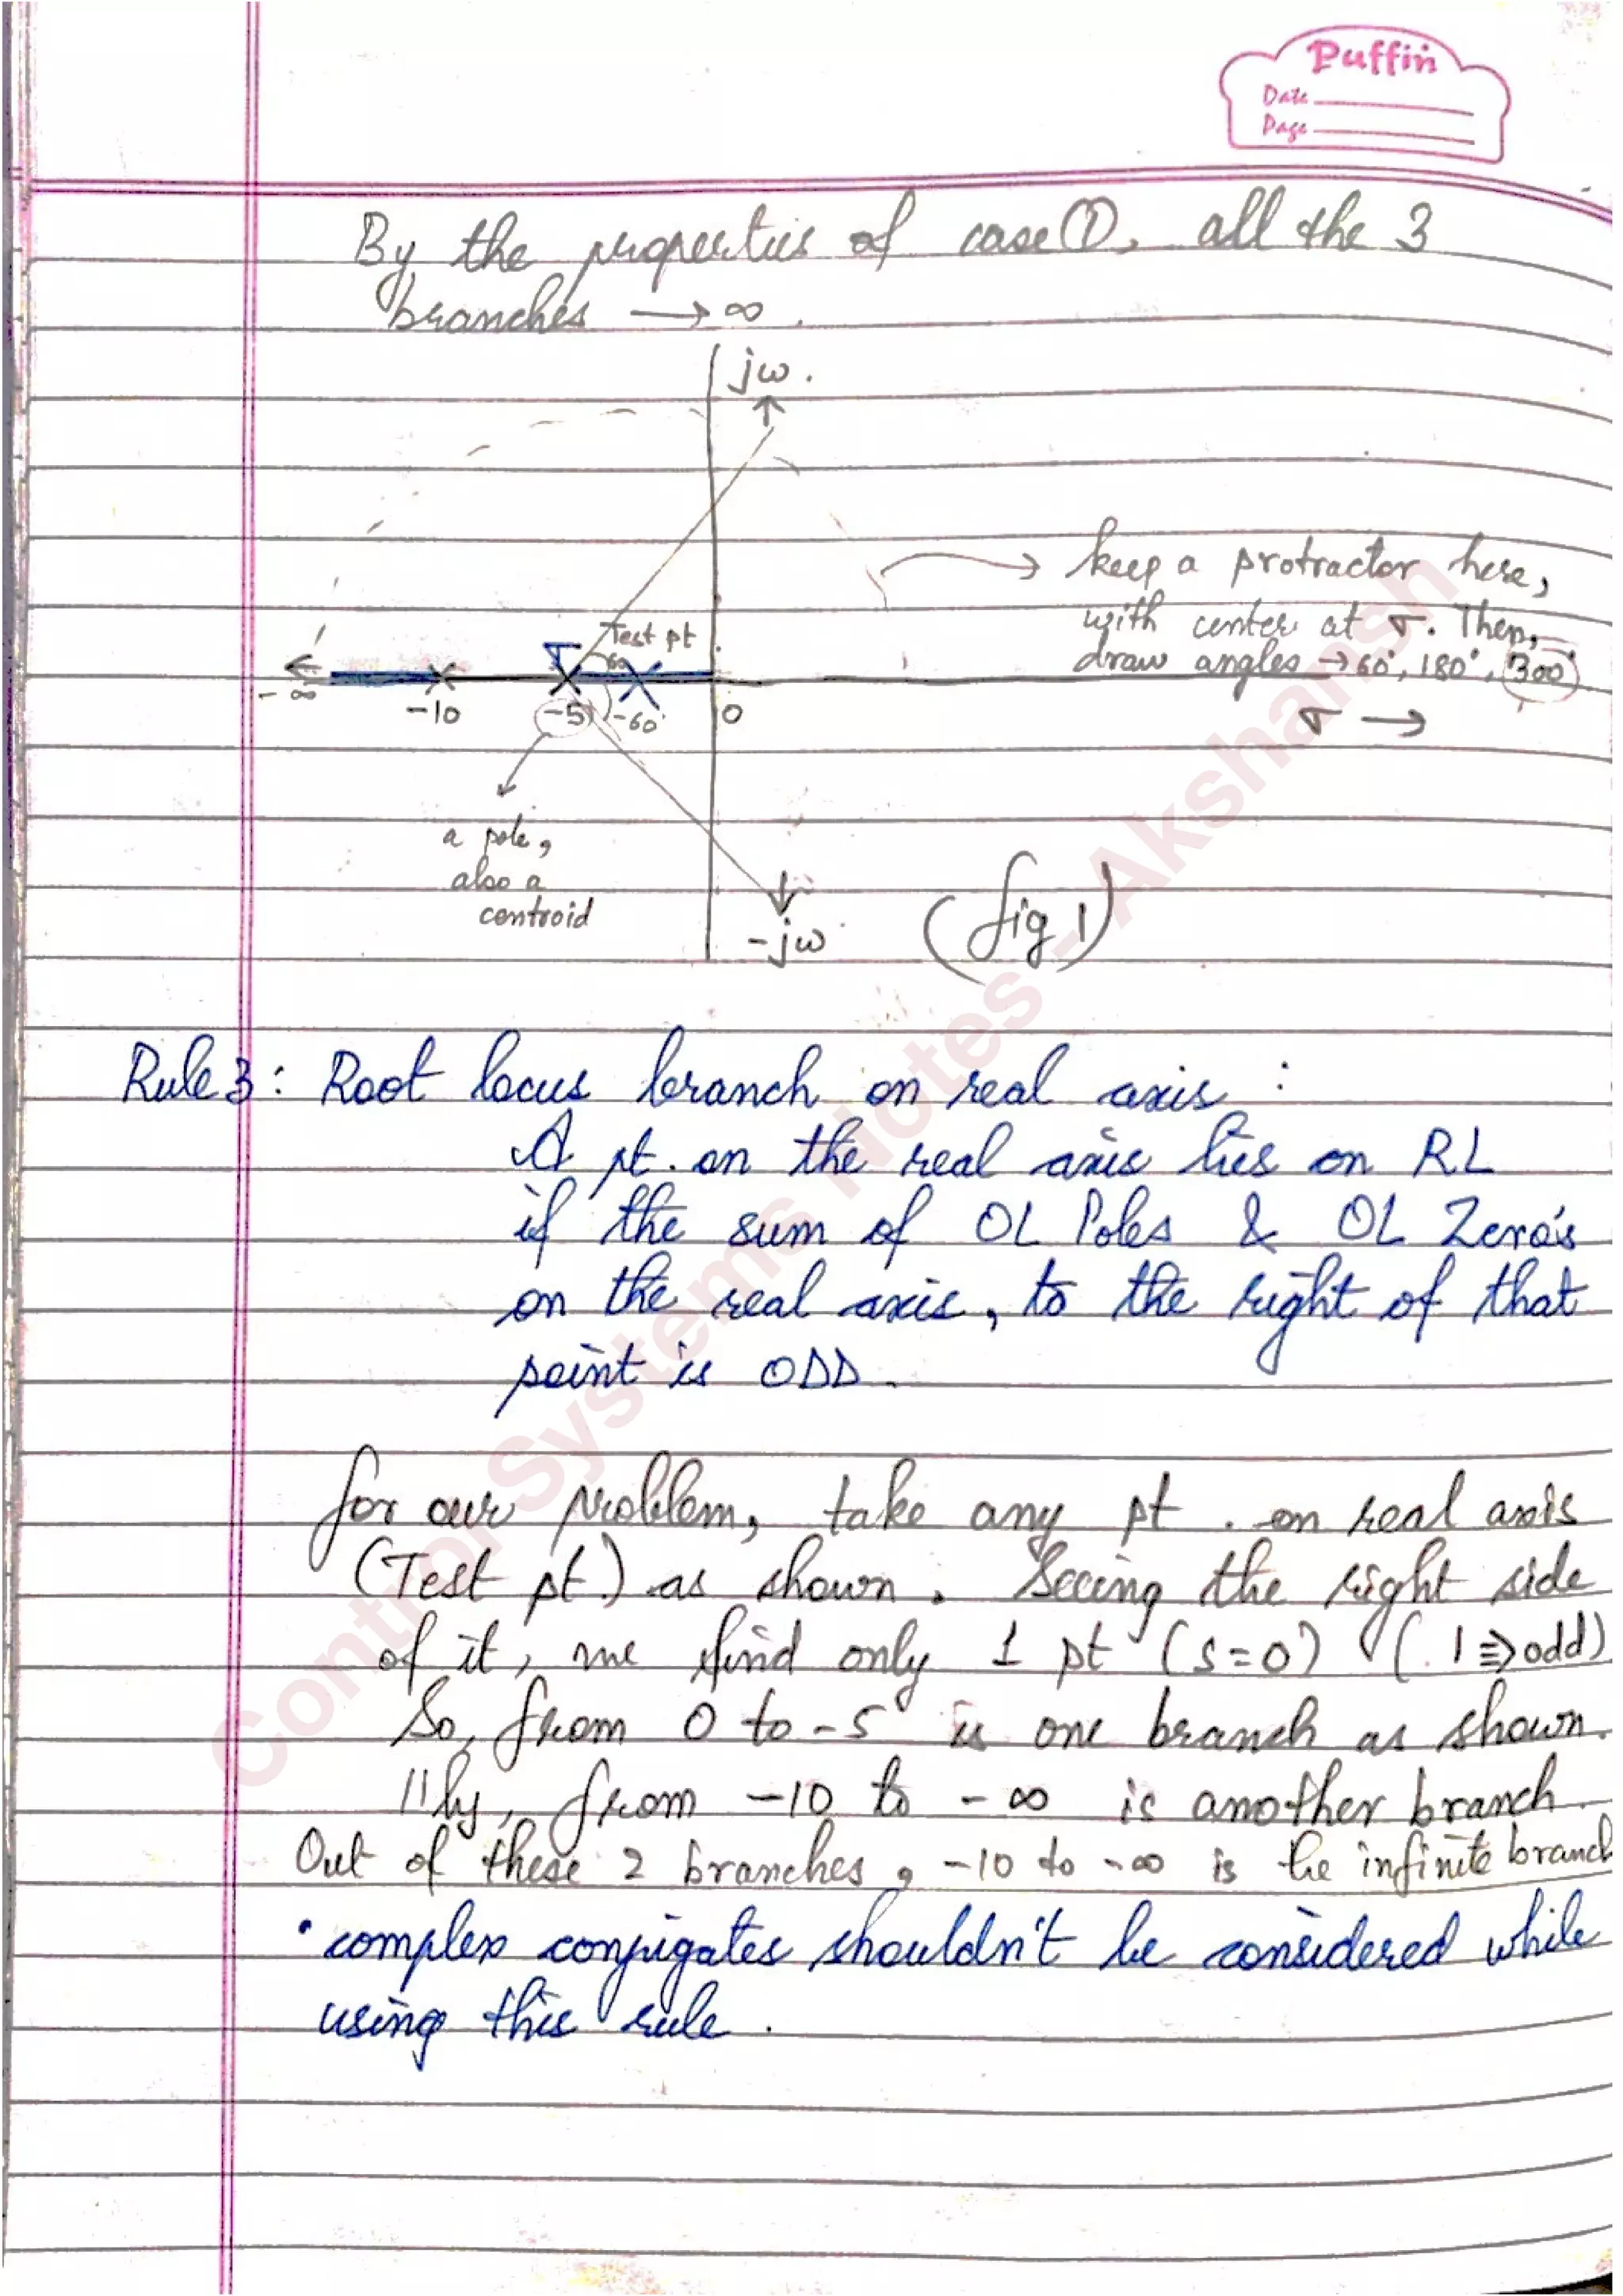 Puffin
Date
Page
By the properties of case ①, all the 3
branches → ∞.
jω.
keep a protractor here,
with center at σ. Then,
draw angles → 60°, 180°, 300°
Test pt
60
σ
-∞
-10
-5
-60°
0
σ →
a pole,
also a
centroid
-jω
(fig 1)
Rule 3: Root locus branch on real axis:
A pt. on the real axis lies on RL
if the sum of OL Poles & OL Zero's
on the real axis, to the right of that
point is ODD.
for our problem, take any pt. on real axis
(Test pt.) as shown. Seeing the right side
of it, we find only 1 pt (s=0) (1 ⇒ odd)
So, from 0 to -5 is one branch as shown.
||ly, from -10 to -∞ is another branch.
Out of these 2 branches, -10 to -∞ is the infinite branch
• complex conjugates shouldn't be considered while
using this rule.
Control Systems Notes - Akshansh